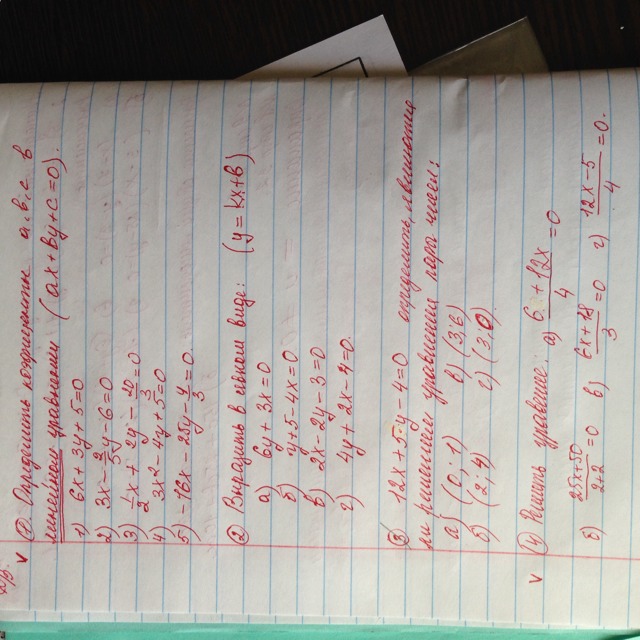 Д/З.
V ① Определить коэфициенты a, b, c в
линейном уравнении (ax + by + c = 0).
1) 6x + 3y + 5 = 0
2) 3x - 2/3 y - 6 = 0
3) 1/2 x + 2y - 10/3 = 0
4) 3x² - 4y + 5 = 0
5) -16x - 25y - 4/3 = 0.
② Выразить в явном виде: (y = kx + b)
а) 6y + 3x = 0
б) y + 5 - 4x = 0
в) 2x - 2y - 3 = 0
г) 4y + 2x - 4 = 0.
③ 12x + 5y - 4 = 0 определить, является
ли решением уравнения пара чисел:
а) (0; 1) в) (3; 6)
б) (2; 4) г) (3; 0)
V ④ Решить уравнение: а) (6 + 12x)/4 = 0
б) (25x + 50)/(2 + 2) = 0 в) (6x + 18)/3 = 0 г) (12x - 5)/4 = 0.